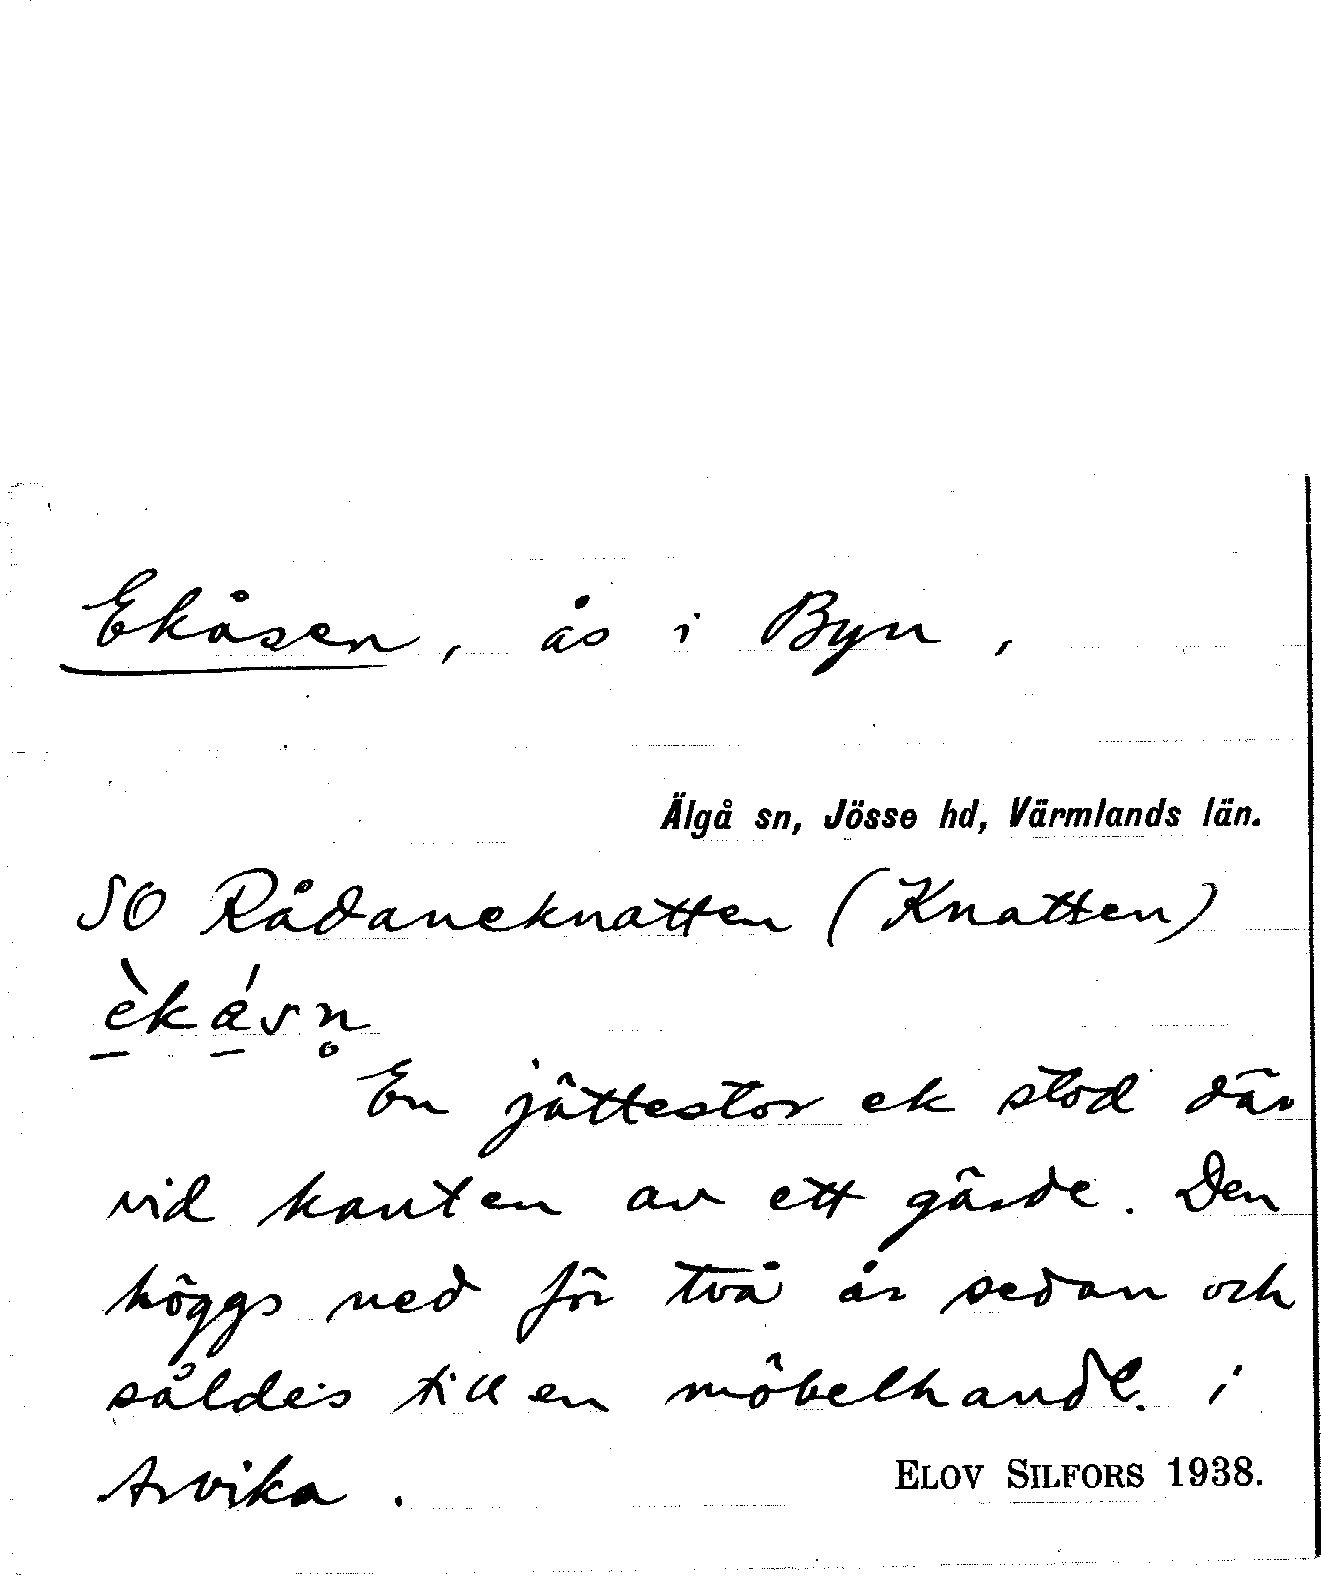 Ekåsen, ås i Byn,
Älgå sn, Jösse hd, Värmlands län.
SO Rådaneknatten (Knatten)
èkásn̥
En jättestor ek stod där
vid kanten av ett gärde. Den
höggs ned för två år sedan och
såldes till en möbelhandl. i
Arvika.
ELOV SILFORS 1938.